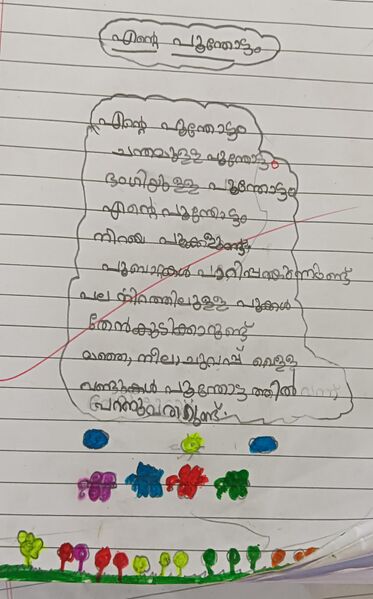 എന്റെ പൂന്തോട്ടം
എന്റെ പൂന്തോട്ടം
ചന്തമുള്ള പൂന്തോട്ടം
ഭംഗിയുള്ള പൂന്തോട്ടം
എന്റെ പൂന്തോട്ടം
നിറയെ പൂക്കളുണ്ട്
പൂമ്പാറ്റകൾ
പല നിറത്തിലുള്ള പൂക്കൾ
തേൻകുടിക്കാറുണ്ട്
മഞ്ഞ, നീല, ചുവപ്പ് വെള്ള
വണ്ടുകൾ പൂന്തോട്ടത്തിൽ
പറന്നുവരാറുണ്ട്.